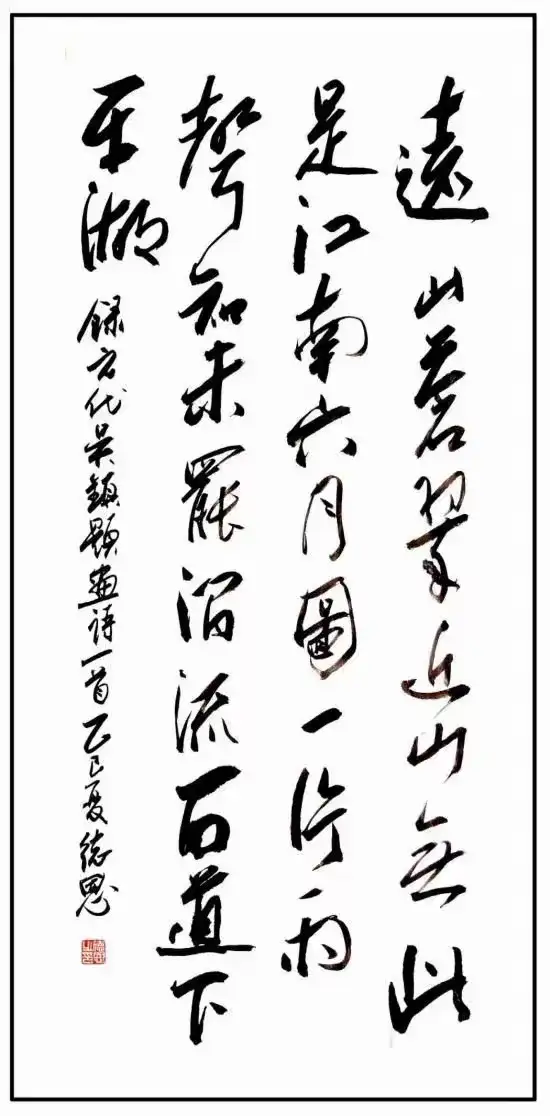 遠山蒼翠近山無此
是江南六月圖一片雨
聲知未罷澗流百道下
平湖 録元代吴鎮題畫詩一首乙巳夏德恩